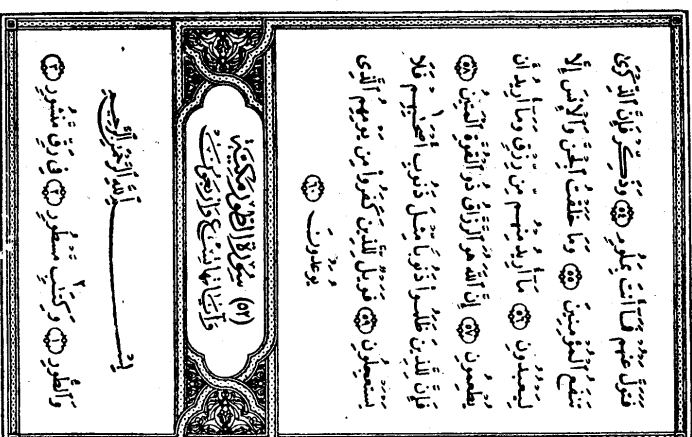 فَتَوَلَّ عَنْهُمْ فَمَآ أَنتَ بِمَلُومٍ ۝٥٤ وَذَكِّرْ فَإِنَّ ٱلذِّكْرَىٰ
تَنفَعُ ٱلْمُؤْمِنِينَ ۝٥٥ وَمَا خَلَقْتُ ٱلْجِنَّ وَٱلْإِنسَ إِلَّا
لِيَعْبُدُونِ ۝٥٦ مَآ أُرِيدُ مِنْهُم مِّن رِّزْقٍ وَمَآ أُرِيدُ أَن
يُطْعِمُونِ ۝٥٧ إِنَّ ٱللَّهَ هُوَ ٱلرَّزَّاقُ ذُو ٱلْقُوَّةِ ٱلْمَتِينُ ۝٥٨
فَإِنَّ لِلَّذِينَ ظَلَمُوا۟ ذَنُوبًا مِّثْلَ ذَنُوبِ أَصْحَٰبِهِمْ فَلَا
يَسْتَعْجِلُونِ ۝٥٩ فَوَيْلٌ لِّلَّذِينَ كَفَرُوا۟ مِن يَوْمِهِمُ ٱلَّذِى
يُوعَدُونَ ۝٦٠
(٥٢) سُورَةُ الطُّورِ مَكِّيَّة
وَآيَاتُهَا تِسْعٌ وَأَرْبَعُونَ
بِسْمِ ٱللَّهِ ٱلرَّحْمَٰنِ ٱلرَّحِيمِ
وَٱلطُّورِ ۝١ وَكِتَٰبٍ مَّسْطُورٍ ۝٢ فِى رَقٍّ مَّنشُورٍ ۝٣